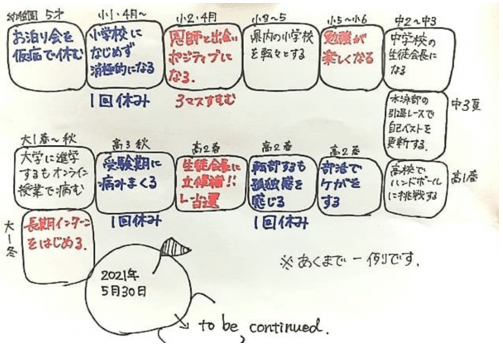 幼稚園 5才
お泊り会を
仮病で休む
小1・4月〜
小学校に
なじめず
消極的になる
1回休み
小2・4月
恩師と出会い
ポジティブに
なる.
3マスすすむ
小2〜5
県内の小学校
を転々とする
小5〜小6
勉強が
楽しくなる
中2〜中3
中学校の
生徒会長に
なる
中3夏
水泳部の
引退レースで
自己ベストを
更新する.
高1春
高校で
ハンドボール
に挑戦する
高2春
部活で
ケガをする
高2春
転部するも
孤独感を
感じる
1回休み
高2春
生徒会長に
立候補!!
↳当選
高3 秋
受験期に
病みまくる
1回休み
大1春〜秋
大学に進学
するもオンライン
授業で病む
大1冬
長期インターン
をはじめる.
2021年
5月30日
to be continued.
※あくまで一例です.